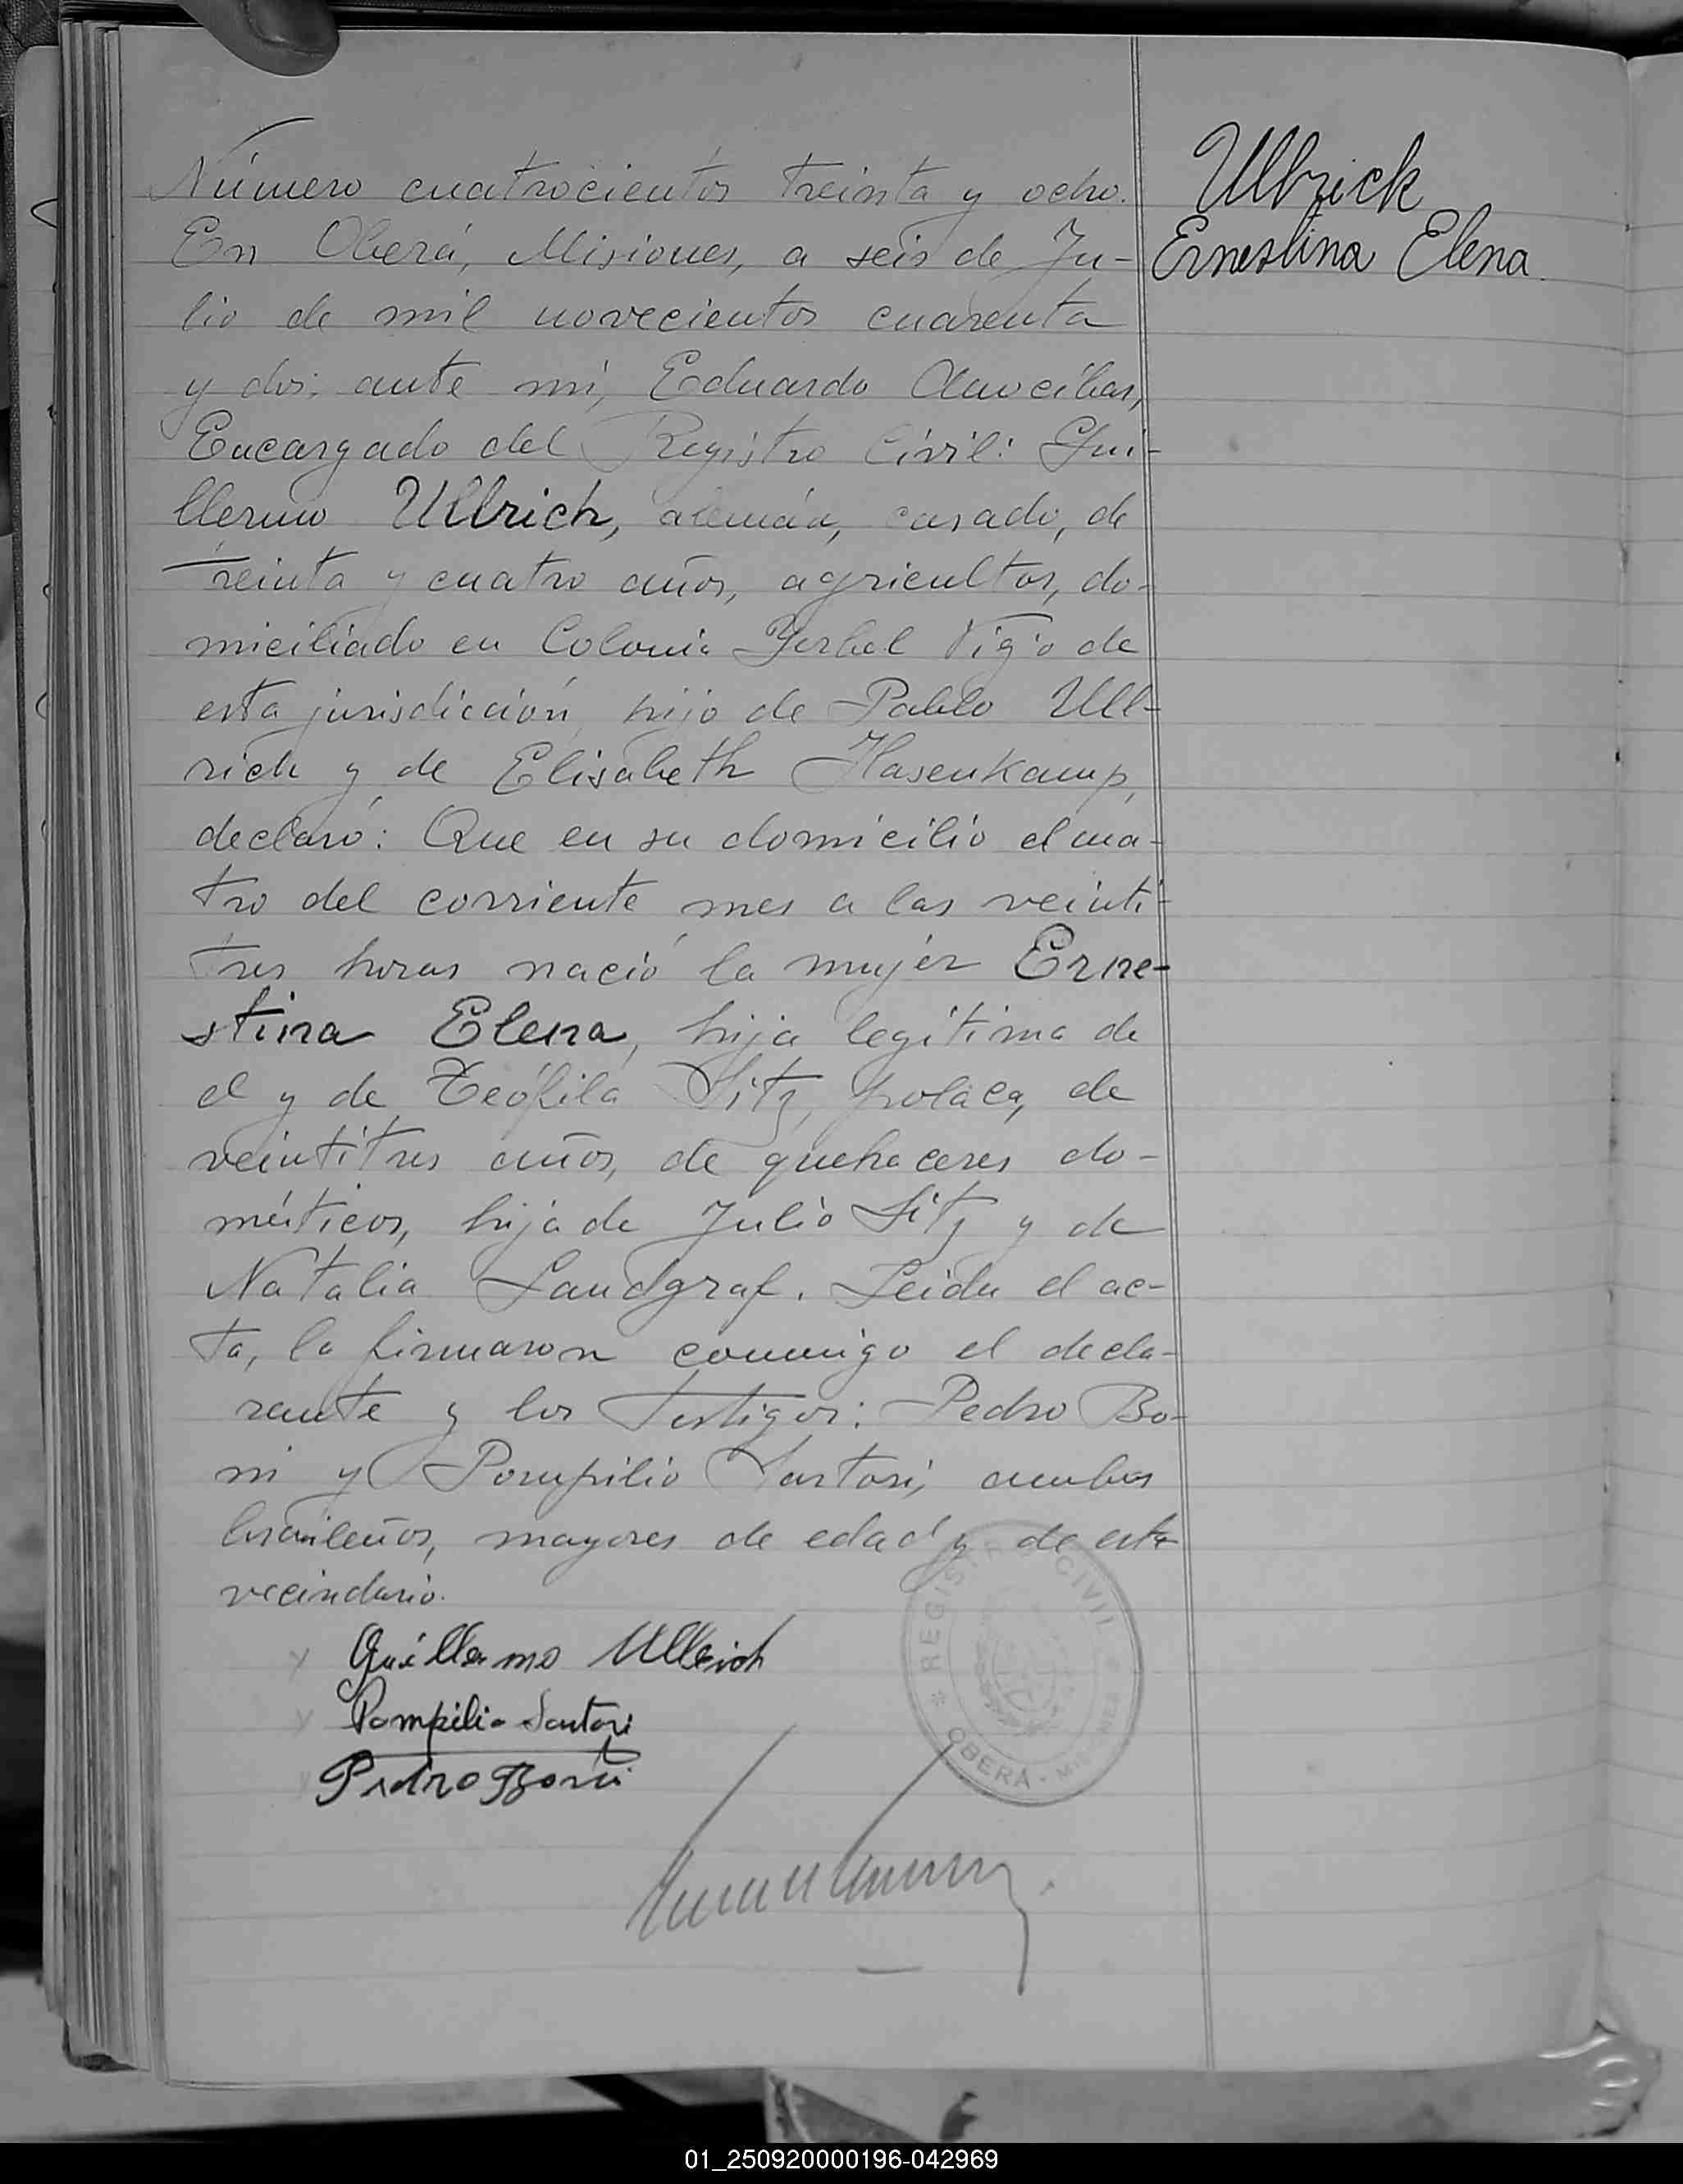 Número cuatrocientos treinta y ocho.
En Oberá, Misiones, a seis de Ju-
lio de mil novecientos cuarenta
y dos, ante mí, Eduardo
Encargado del Registro Civil: Gui-
llermo Ullrich, alemán, casado, de
treinta y cuatro años, agricultor, do-
miciliado en Colonia Yerbal Vigo de
esta jurisdicción, hijo de Pablo Ull-
rich y de Elisabeth Hasenkamp,
declaró: Que en su domicilio el cua-
tro del corriente mes a las veinti-
tres horas nació la mujer Erne-
stina Elena, hija legítima de
el y de Teófila Sitz, polaca, de
veintitres años, de quehaceres do-
mésticos, hija de Julio Sitz y de
Natalia Landgraf. Leida el ac-
ta, la firmaron conmigo el decla-
rante y los testigos: Pedro Bo-
ni y Pompilio Sartori, ambos
brasileños, mayores de edad y de esta
vecindario.
Guillermo Ullrich
Pompilio Sartori
Pedro Boni
REGISTRO CIVIL
* OBERÁ - MISIONES *
Ulbrick
Ernestina Elena
01_250920000196-042969